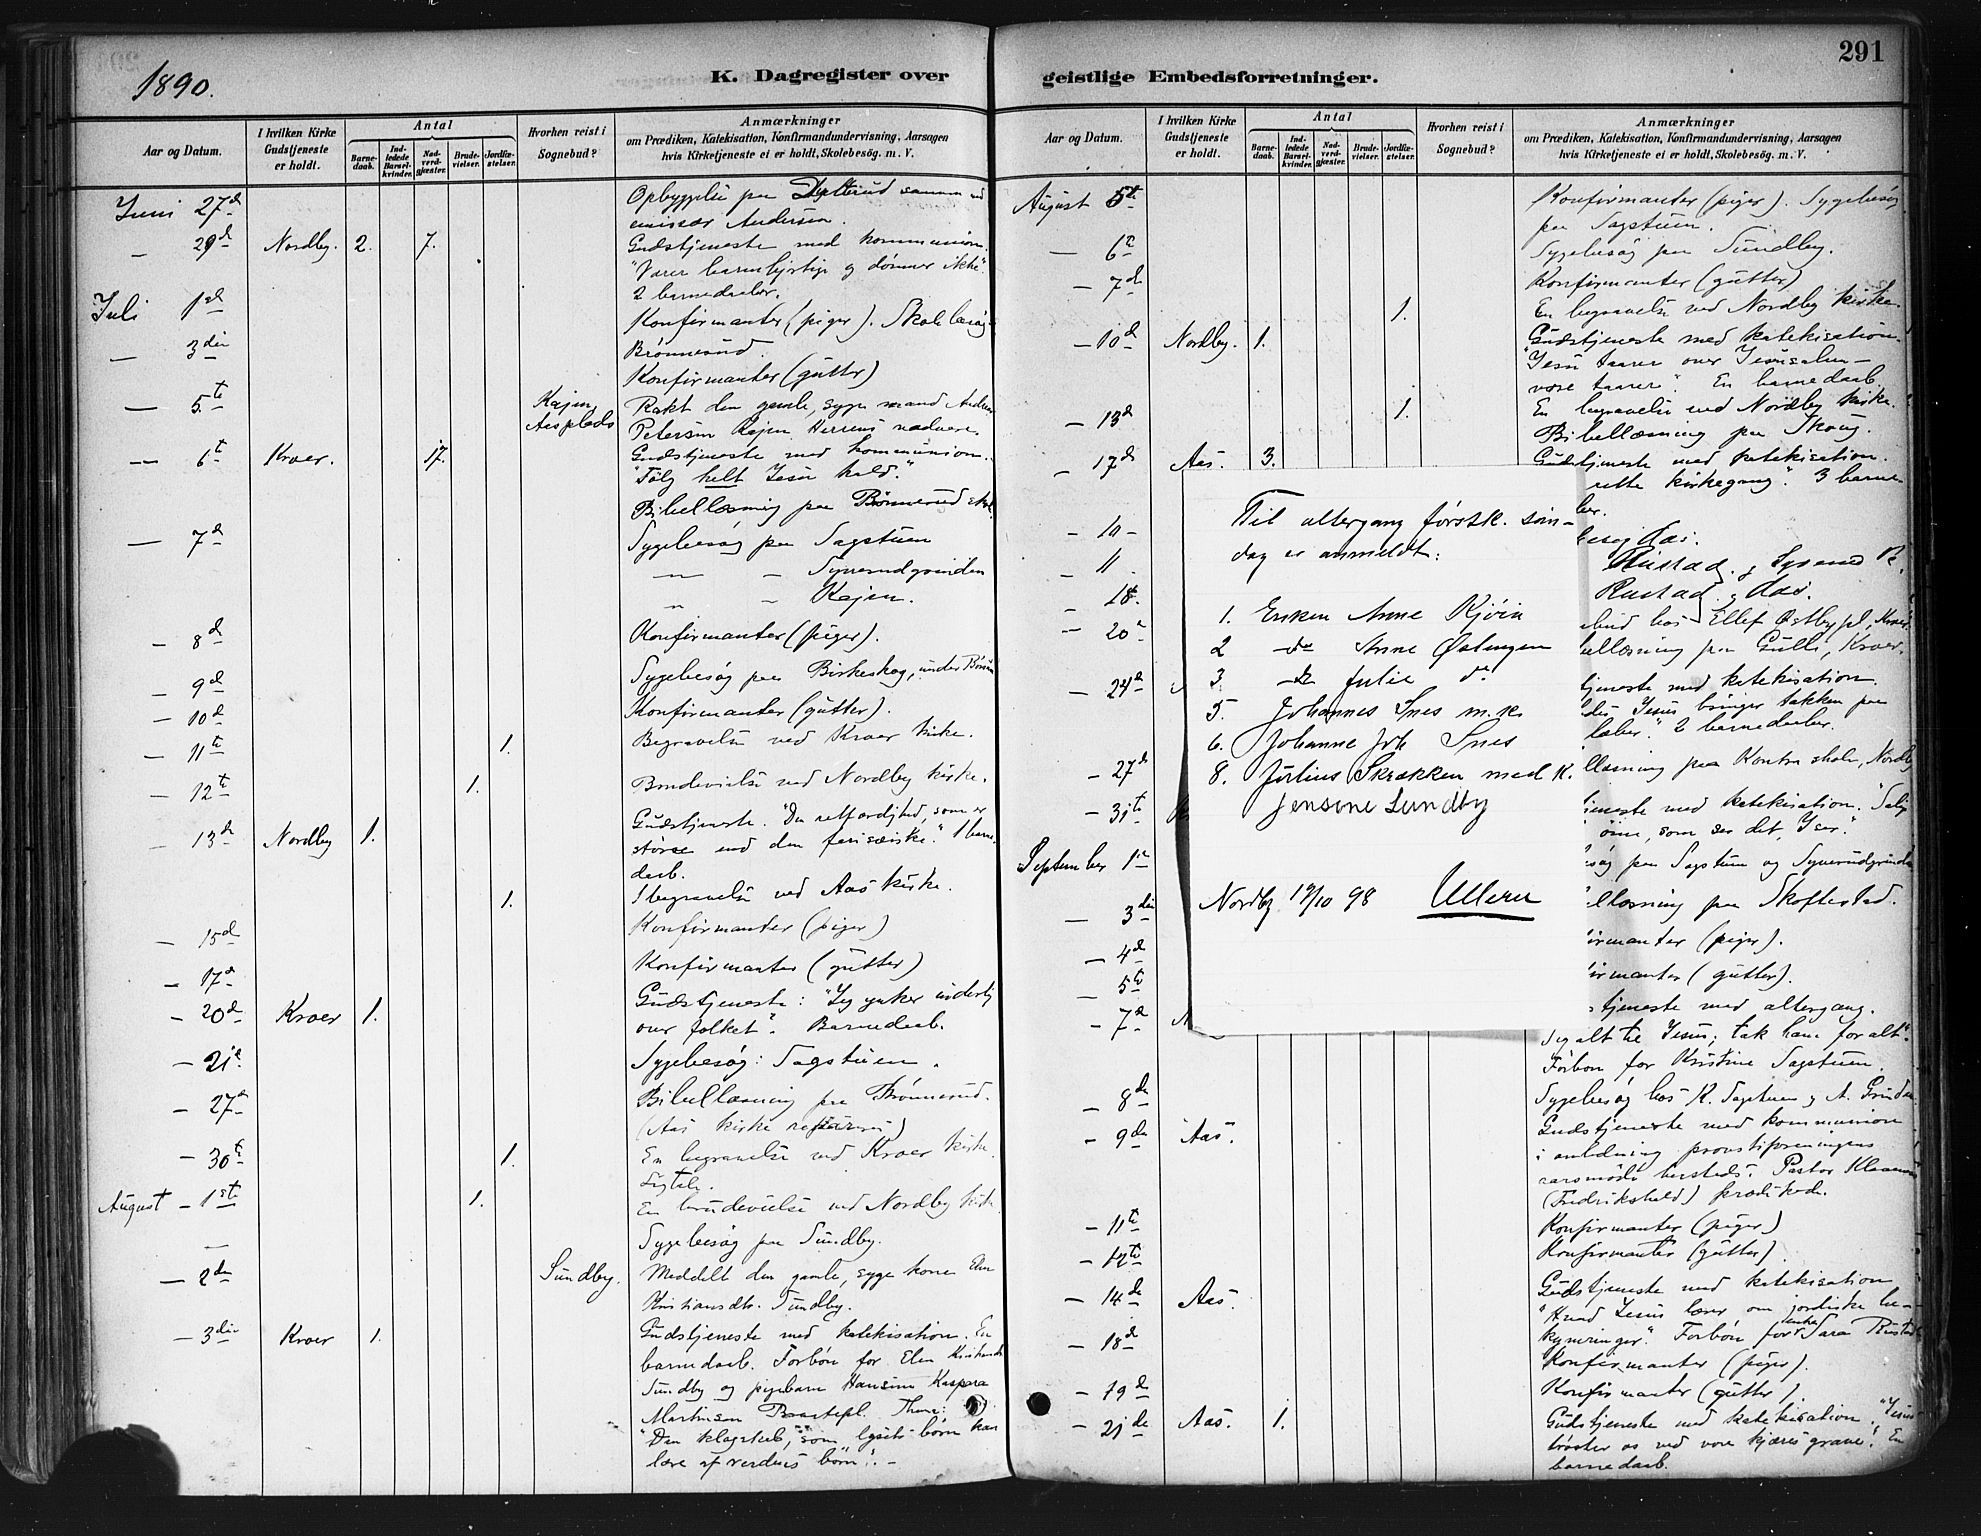 291
1890.
K. Dagregister over geistlige Embedsforretninger.
Aar og Datum.
I hvilken Kirke Gudstjeneste er holdt.
Antal
Barnedaab.
Indledede Barselkvinder.
Nadverdgjæster.
Brudevielser.
Jordfæstelser.
Hvorhen reist i Sognebud?
Anmærkninger
om Prædiken, Katekisation, Konfirmandundervisning, Aarsagen
hvis Kirketjeneste ei er holdt, Skolebesög. m. V.
Juni 27d Opbyggelse paa sammen med
emissær Andersen.
— 29d Nordby. 2. 7. Gudstjeneste med kommunion.
"Værer barmhjertige og dömmer ikke".
2 barnedaaber.
Juli 1st Konfirmanter (piger). Skolebesög
Brönnerud.
— 3die Konfirmanter (gutter)
— 5te Kajen, Aasplads Rakt den gamle, syge mand Anders
Petersen Kajen Herrens nadvere.
— 6te Kroer. 17. Gudstjeneste med kommunion.
"Fölg helt Jesu kald."
Bibellæsning paa Brönnerud skole.
— 7de Sygebesög paa Sagstuen
— " — Synerudgrinden
" — Kajen.
— 8de Konfirmanter (piger).
— 9de Sygebesög paa Birkeskog, under
— 10de Konfirmanter (gutter).
— 11te 1. Begravelse ved Kroer kirke.
— 12te 1. Brudevielse ved Nordby kirke.
— 13de Nordby 1. Gudstjeneste. "Den retfærdighed, som er
större end den fariseiske." 1 barne-
daab.
1. 1 begravelse ved Aas kirke.
— 15de Konfirmanter (piger)
— 17de Konfirmanter (gutter)
— 20de Kroer 1. Gudstjeneste: "Jeg ynker inderlig
over folket". Barnedaab.
— 21de Sygebesög: Sagstuen.
— 27de Bibellæsning paa Brönnerud.
(Aas kirke )
— 30te 1. En begravelse ved Kroer kirke.
August — 1ste 1. En brudevielse ved Nordby kirke
— Sygebesög paa Sundby.
— 2den Sundby. Meddelt den gamle, syge kone Elen
Kristiansdtr. Sundby.
— 3die Kroer 1. Gudstjeneste med katekisation. En
barnedaab. Forbön for Elen
Sundby og pigebarn Hansine Kaspara
Martinsen Thema:
"Den klogskab, som lysets börn kan
lære af verdens börn". —
Aar og Datum.
I hvilken Kirke Gudstjeneste er holdt.
Antal
Barnedaab.
Indledede Barselkvinder.
Nadverdgjæster.
Brudevielser.
Jordfæstelser.
Hvorhen reist i Sognebud?
Anmærkninger
om Prædiken, Katekisation, Konfirmandundervisning, Aarsagen
hvis Kirketjeneste ei er holdt, Skolebesög. m. V.
August 5te Konfirmanter (piger). Sygebesög
paa Sagstuen.
— 6te Sygebesög paa Sundby.
— 7de Konfirmanter (gutter)
1. En begravelse ved Nordby kirke.
— 10de Nordby. 1. Gudstjeneste med katekisation.
"Jesu taarer over Jerusalem —
vore taarer". En barnedaab.
— 13de 1. En begravelse ved Nordby kirke.
Bibellæsning paa Skoug.
— 17de Aas. 3. Gudstjeneste med katekisation.
rette kirkegang". 3 barne-
ber.
— 10 — Aas.
— 11. Rustad.
— 18. Rustad, Aas.
— 20de bud hos Ellef Østbypl, Kroer.
llæsning paa Gulli, Kroer.
— 24de tjeneste med katekisation.
Jesus bringer takken paa
læber." 2 barnedaaber.
— 27de llæsning paa Kontra skole, Nordby
— 31te jeneste med katekisation. "Salig
öine, som ser det, I ser."
September 1ste sög paa Sagstuen og Synerudgrinden
— 3die llæsning paa Skoftestad.
— 4de irmanter (piger).
— 5te irmanter (gutter).
— 7de tjeneste med altergang.
Sig alt til Jesus; tak ham for alt".
Forbön for Kristine Sagstuen.
— 8de Sygebesög hos K. Sagstuen og A. Grinden
— 9de Aas. Gudstjeneste med kommunion
i anledning provstiforeningens
aarsmöde hersteds. Pastor
(Fredrikshald) prædikede.
— 11te Konfirmanter (piger)
— 12te Konfirmanter (gutter)
— 14de Aas. Gudstjeneste med katekisation
"Hvad Jesus lærer om jordiske be-
kymringer". Forbön for enke Sara Rustad
— 18de Konfirmanter (piger).
— 19de Konfirmanter (gutter).
— 21de Aas. 1. Gudstjeneste med katekisation. "Jesus
tröster os ved vore kjæres grave." En
barnedaab.
Til altergang förstk. sön-
dag er anmeldt:
1. Enken Anne Kjöin
2 do Anne Østengen
3. do Julie do
5. Johannes Snes m. k.
6. Johanne Joh Snes
8. Julius Skrækken med K.
Jensine Sundby
Nordby 19/10 98 Ulleru